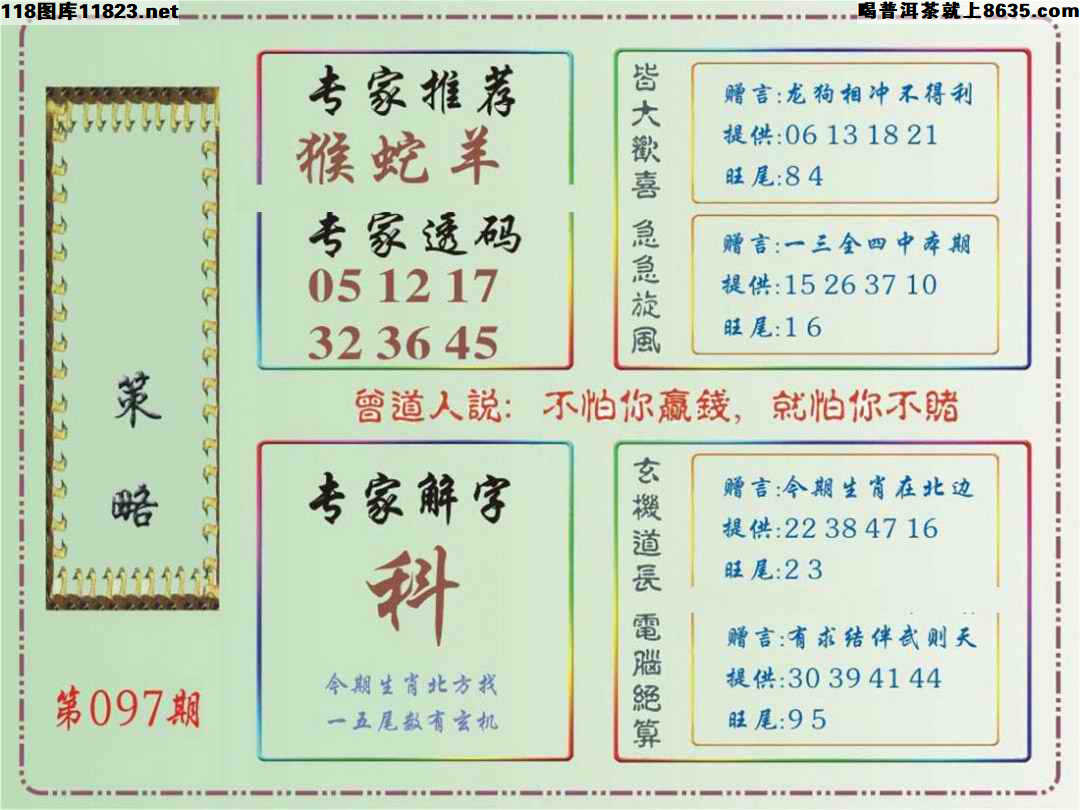 118图库11823.net
喝普洱茶就上8635.com
策略
第097期
专家推荐
猴蛇羊
专家透码
05 12 17
32 36 45
皆大歡喜
赠言:龙狗相冲不得利
提供:06 13 18 21
旺尾:8 4
急急旋風
赠言:一三全四中本期
提供:15 26 37 10
旺尾:1 6
曾道人説: 不怕你贏錢, 就怕你不賭
专家解字
科
今期生肖北方找
一五尾数有玄机
玄機道長
赠言:今期生肖在北边
提供:22 38 47 16
旺尾:2 3
電腦絕算
赠言:有求结伴武则天
提供:30 39 41 44
旺尾:9 5